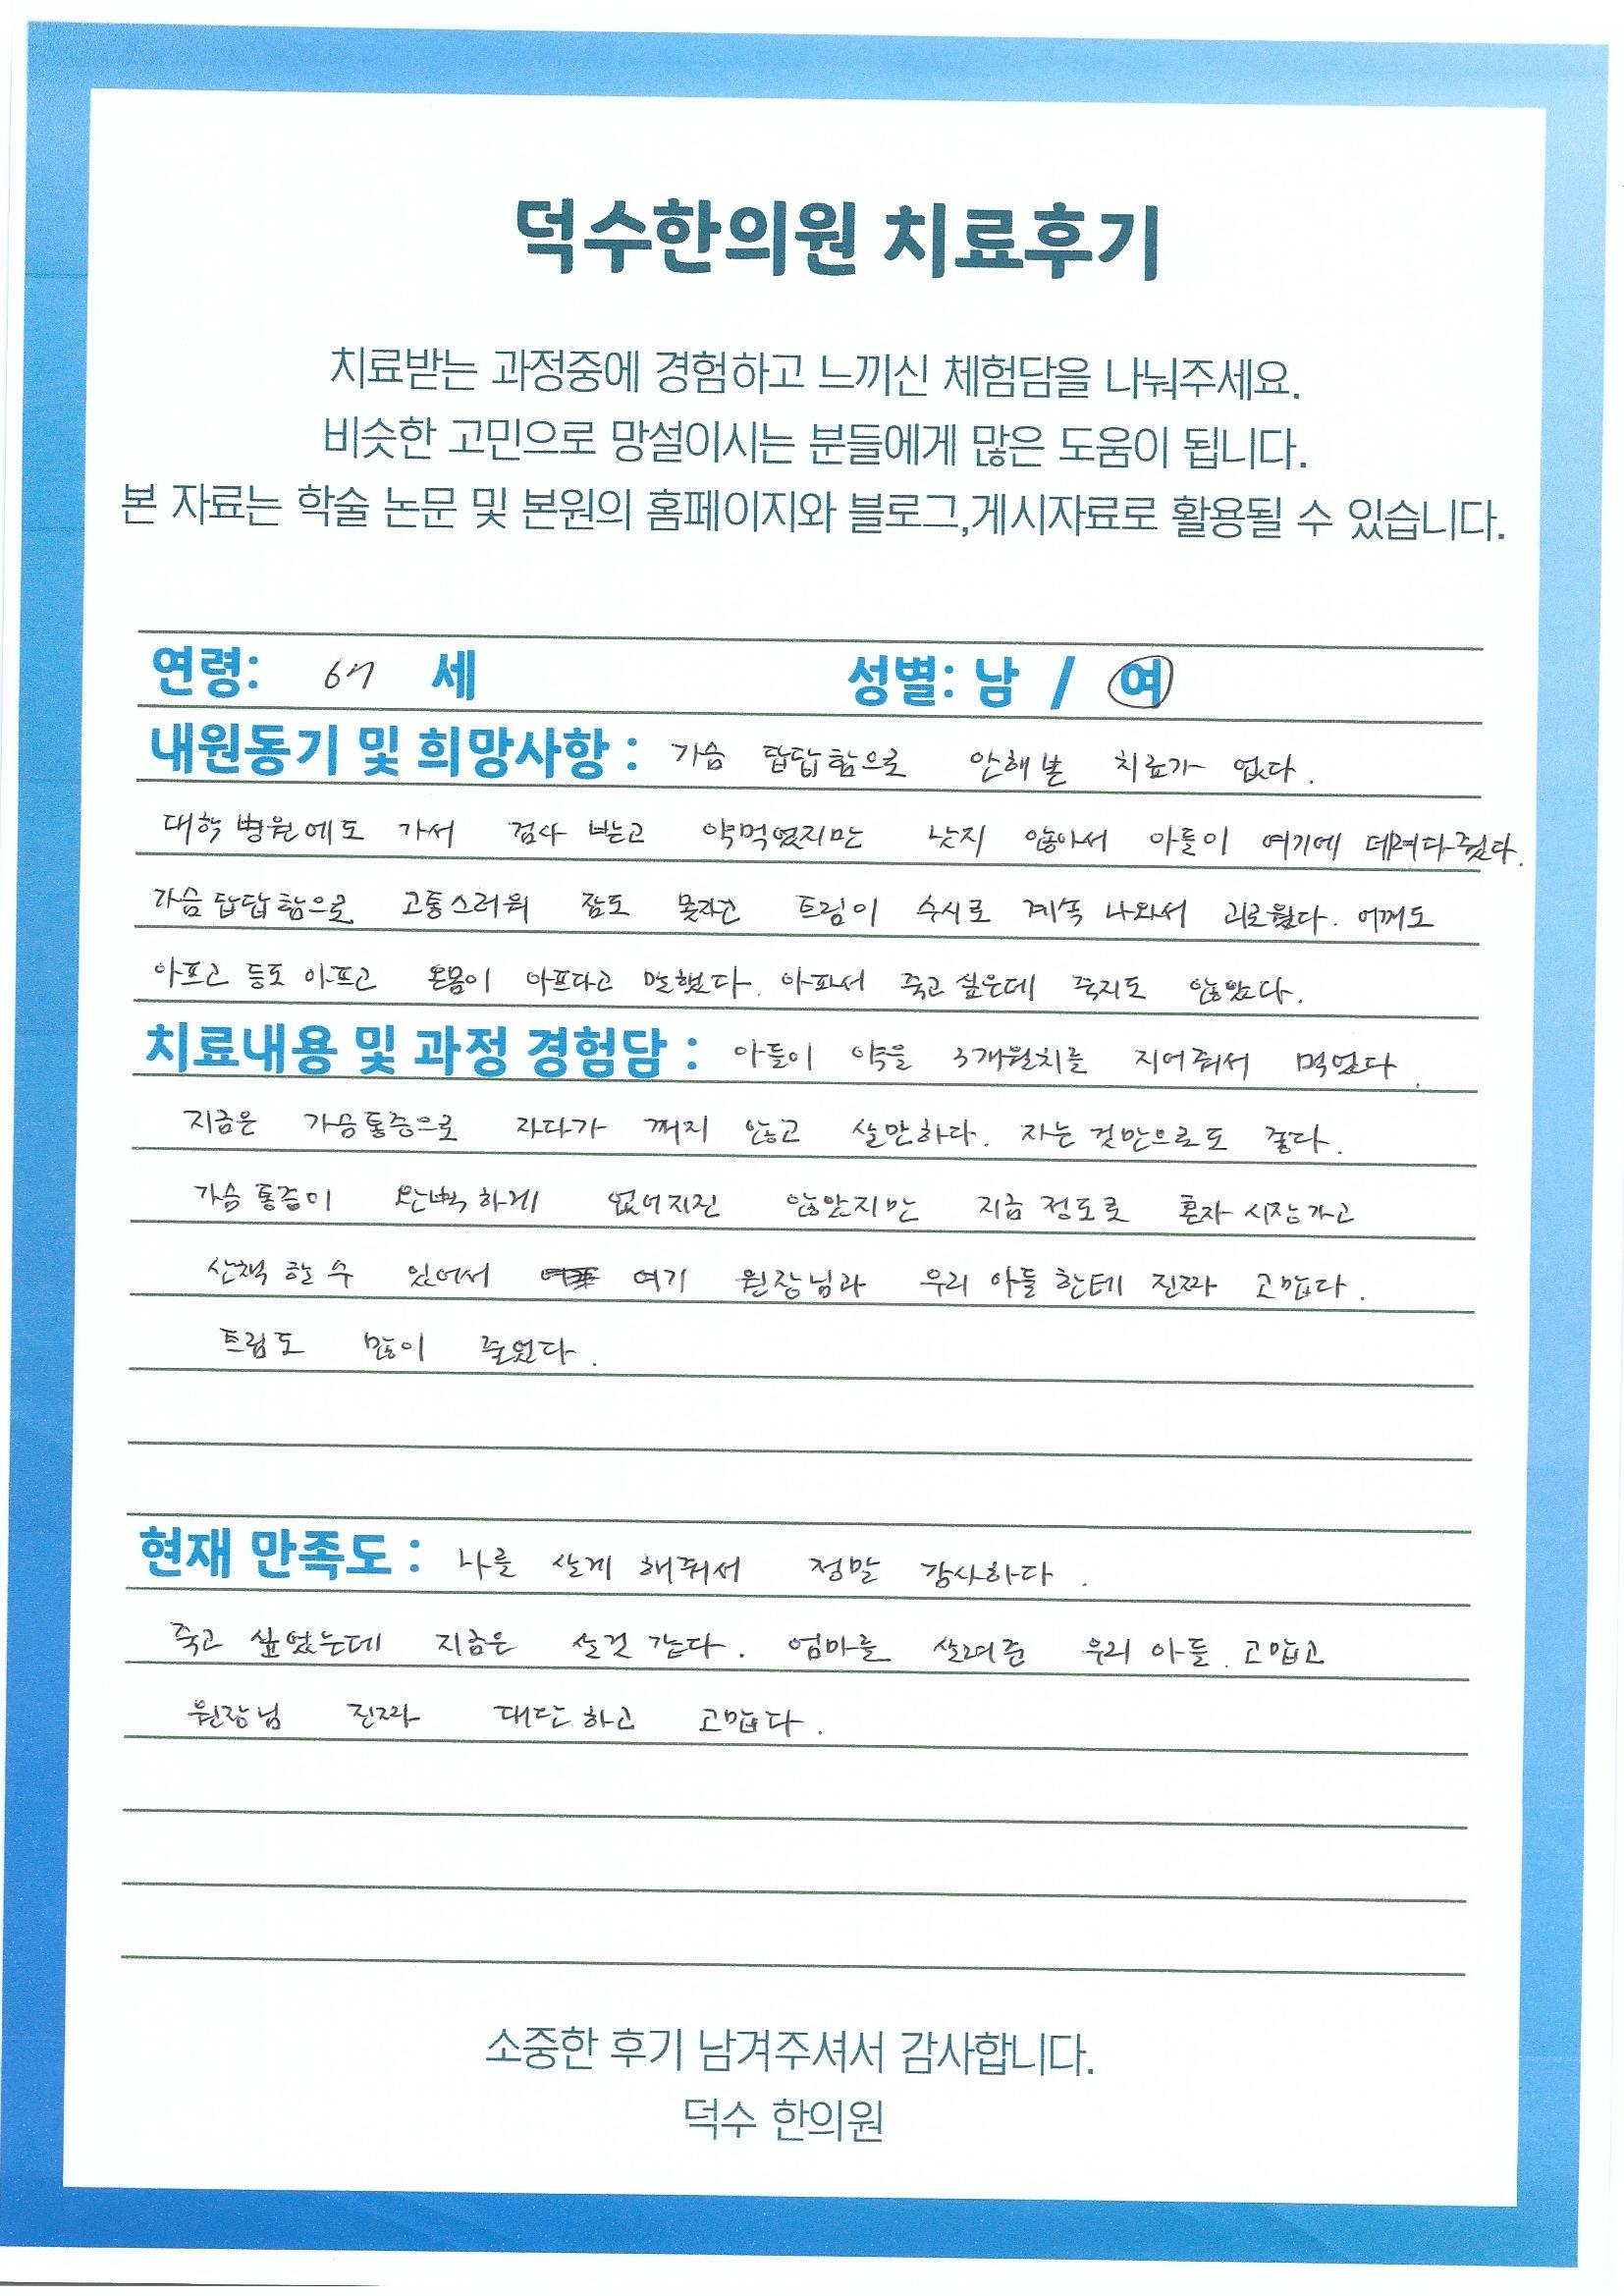 덕수한의원 치료후기
치료받는 과정중에 경험하고 느끼신 체험담을 나눠주세요.
비슷한 고민으로 망설이시는 분들에게 많은 도움이 됩니다.
본 자료는 학술 논문 및 본원의 홈페이지와 블로그,게시자료로 활용될 수 있습니다.
연령: 67 세 성별: 남 / 여
내원동기 및 희망사항 : 가슴 답답함으로 안해본 치료가 없다.
대학병원에도 가서 검사 받고 약먹었지만 낫지 않아서 아들이 여기에 데려다줬다.
가슴 답답함으로 고통스러워 잠도 못자고 트림이 수시로 계속 나와서 괴로웠다. 어깨도
아프고 등도 아프고 온몸이 아프다고 말했다. 아파서 죽고 싶은데 죽지도 않았다.
치료내용 및 과정 경험담 : 아들이 약을 3개월치를 지어줘서 먹었다.
지금은 가슴통증으로 자다가 깨지 않고 살만하다. 자는 것만으로도 좋다.
가슴 통증이 완벽하게 없어지진 않았지만 지금 정도로 혼자 시장가고
산책 할 수 있어서 여기 원장님과 우리 아들 한테 진짜 고맙다.
트림도 많이 줄었다.
현재 만족도 : 나를 살게 해줘서 정말 감사하다.
죽고 싶었는데 지금은 살것 같다. 엄마를 살려준 우리 아들 고맙고
원장님 진짜 대단하고 고맙다.
소중한 후기 남겨주셔서 감사합니다.
덕수 한의원